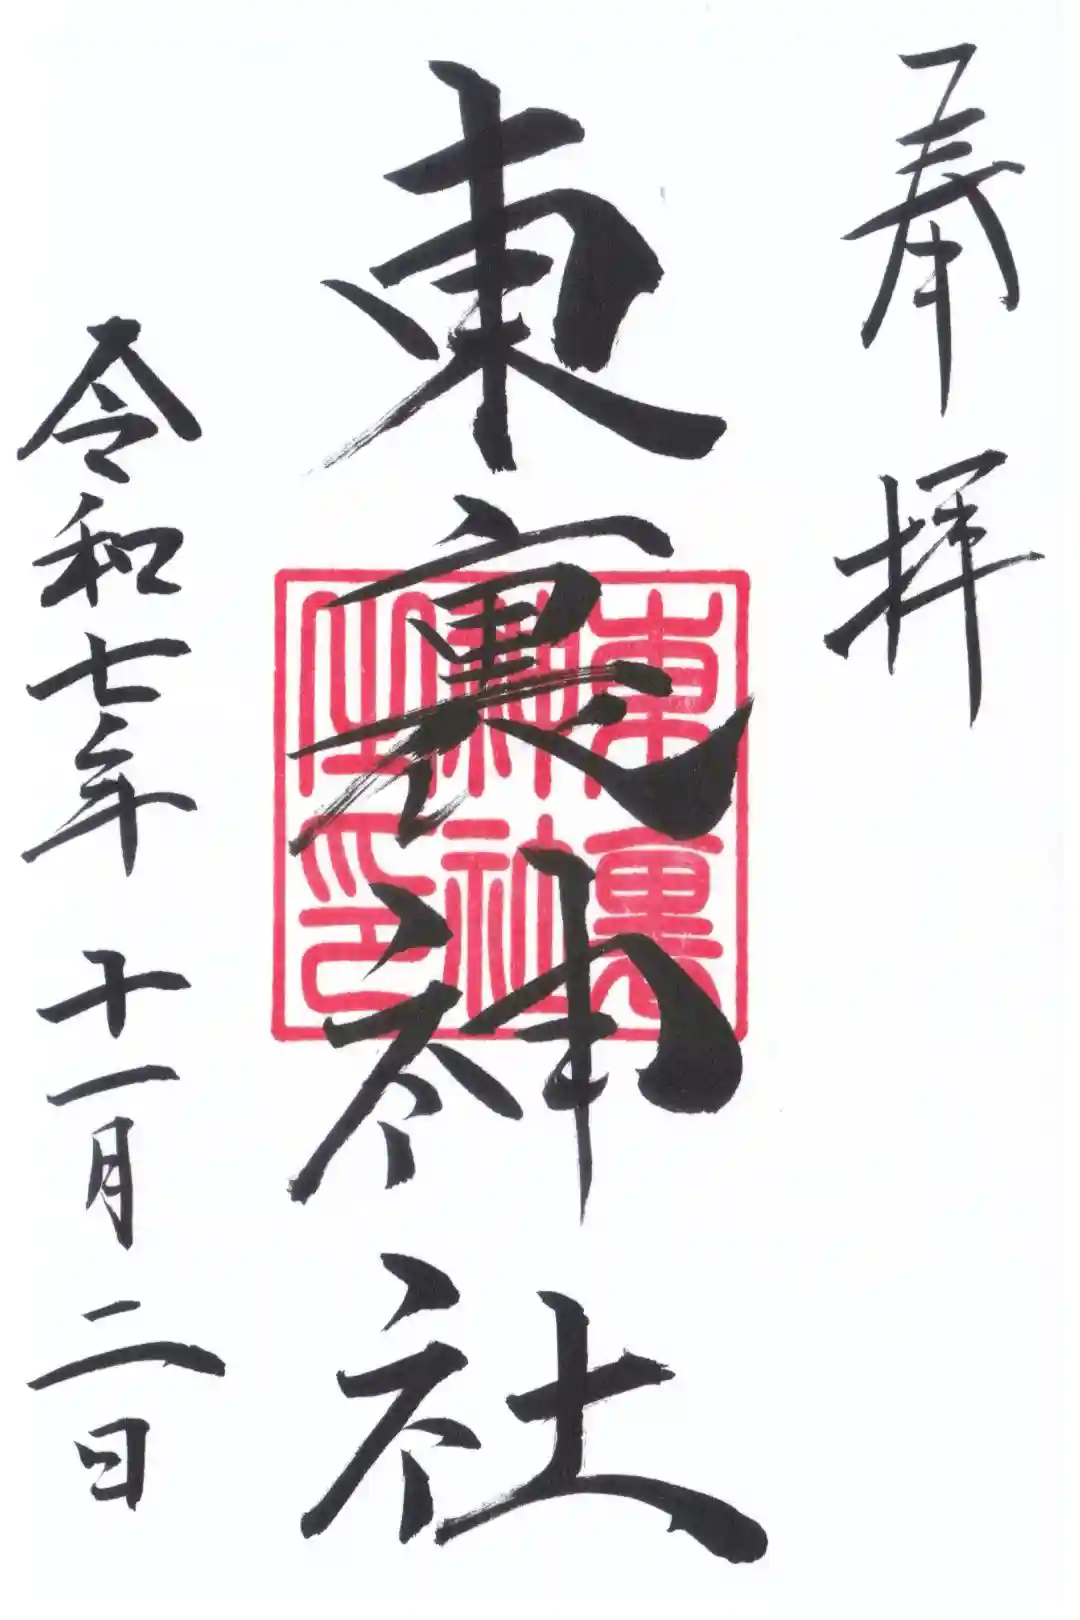 奉拝
東裏神社
令和七年 十一月二日
東裏
神社
之印